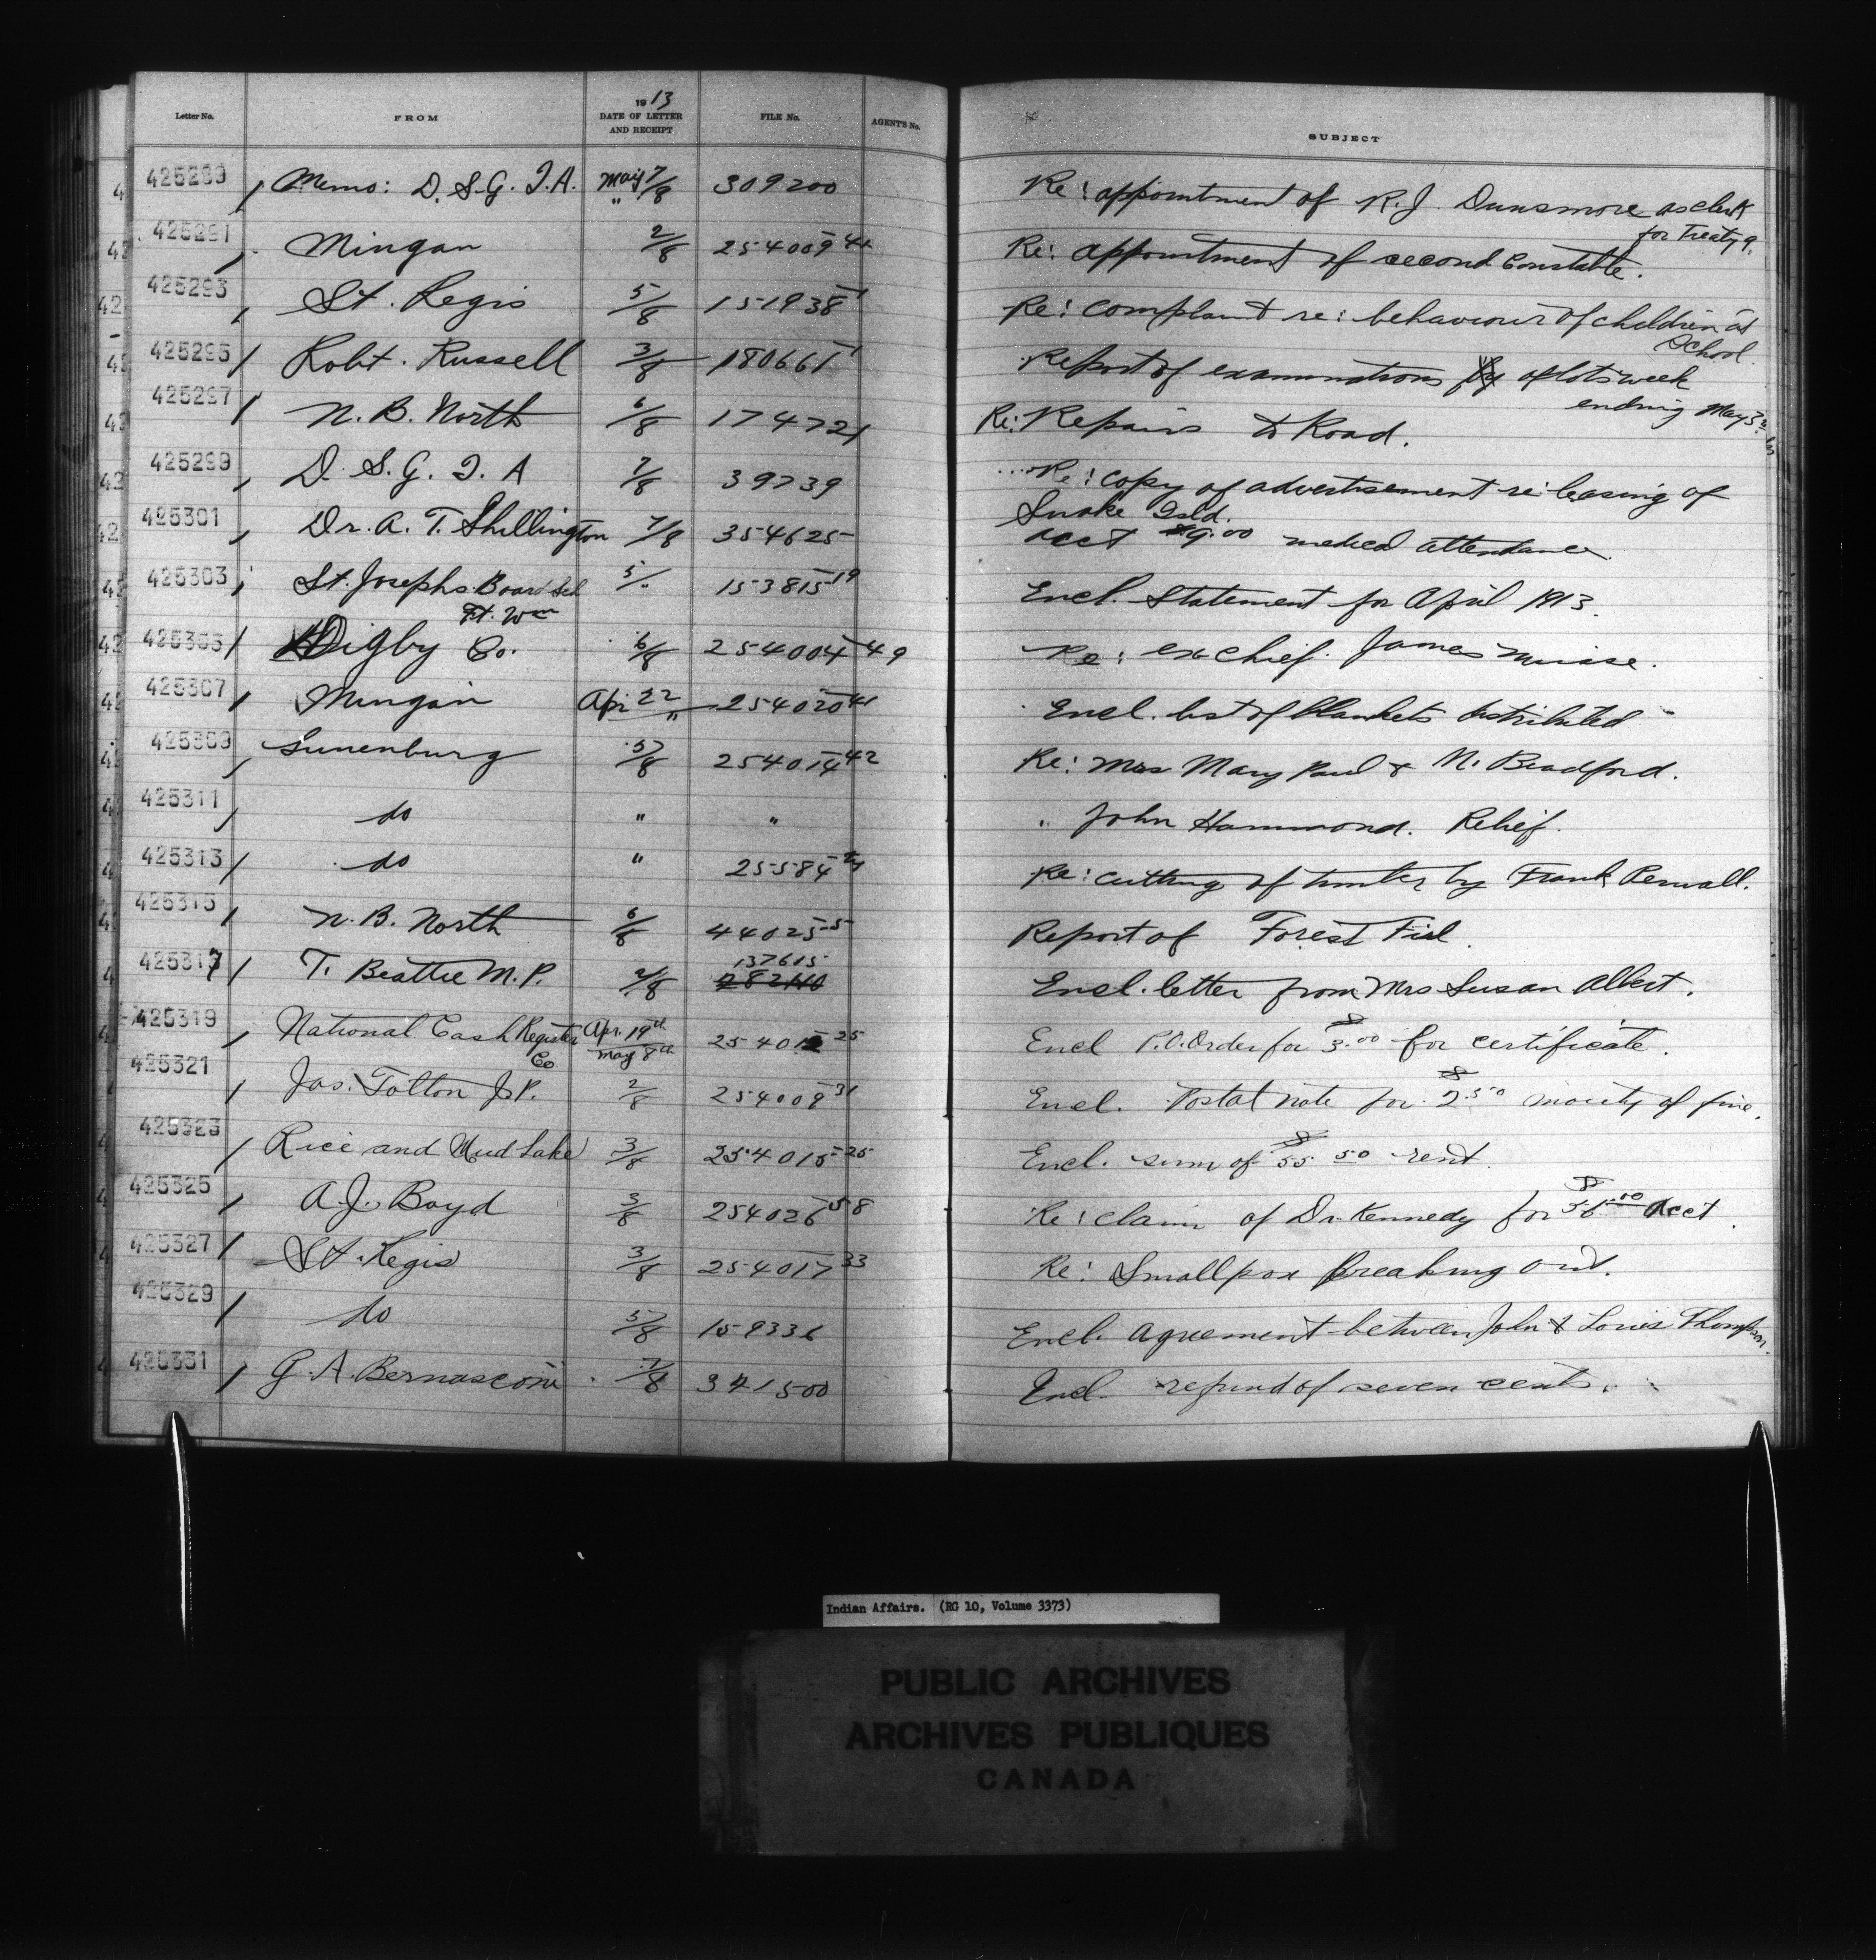 Letter No. FROM 1913 DATE OF LETTER AND RECEIPT FILE No. AGENT'S No. SUBJECT
425289 Memo: D.S.G.I.A. May 7/8 309200 Re: appointment of R.J. Dunsmore as clerk
for Treaty 9.
425291 Mingan 2/8 254009-41 Re: appointment of second Constable.
425293 St. Regis 5/8 151938-1 Re: complaint re: behaviour of children at
School.
425295 Robt. Russell 3/8 180661-1 Report of examinations of lots week
ending May 3rd
425297 N.B. North 6/8 174721 Re: Repairs to Road.
425299 D.S.G.I.A 7/8 39739 Re: copy of advertisement re: leasing of
Snake Isld.
425301 Dr. A.T. Shillington 7/8 354625- acct $9.00 medical attendance
425303 St. Josephs Board Sch 5/" 153815-19 Encl. Statement for April 1913.
Ft. Wm
425305 Digby Co. 6/8 254004-49 Re: ex chief James Muise.
425307 Mingan Apr 22/" 254020-41 Encl. list of blankets distributed
425309 Lunenburg 5/8 254014-42 Re: Mrs Mary Paul & N. Bradford.
425311 do " " " John Hammond. Relief.
425313 do " 25584 Re: cutting of timber by Frank Penall.
425315 N.B. North 6/8 44025-5 Report of Forest Fire.
137615
425317 T. Beattie M.P. 2/8 Encl. letter from Mrs Susan Albert.
425319 National Cash Register Apr. 19th 25401 25 Encl P.O. Order for $3.00 for certificate.
Co May 8th
425321 Jas. Totton J.P. 2/8 254009-31 Encl. Postal note for $2.50 moiety of fine.
425323 Rice and Mud Lake 3/8 254015-25 Encl. sum of $55.50 rent.
425325 A.J. Boyd 3/8 254026-58 Re: claim of Dr. Kennedy for $56.00 Acct.
425327 St. Regis 3/8 254017-33 Re: Smallpox breaking out.
425329 do 5/8 159336 Encl. agreement between John & Louis Thompson.
425331 G.A. Bernasconi 7/8 341500 Encl. refund of seven cents.
Indian Affairs. (RG 10, Volume 3373)
PUBLIC ARCHIVES
ARCHIVES PUBLIQUES
CANADA